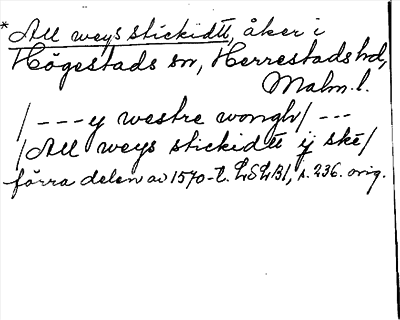 *All weys stickidtt, åker i
Högestads sn, Herrestads hd,
Malm. l.
/ - - - y westre wongh/ - - -
/All weys stickidtt ij ske/
förra delen av 1570-t. LSLB1, s. 236. orig.